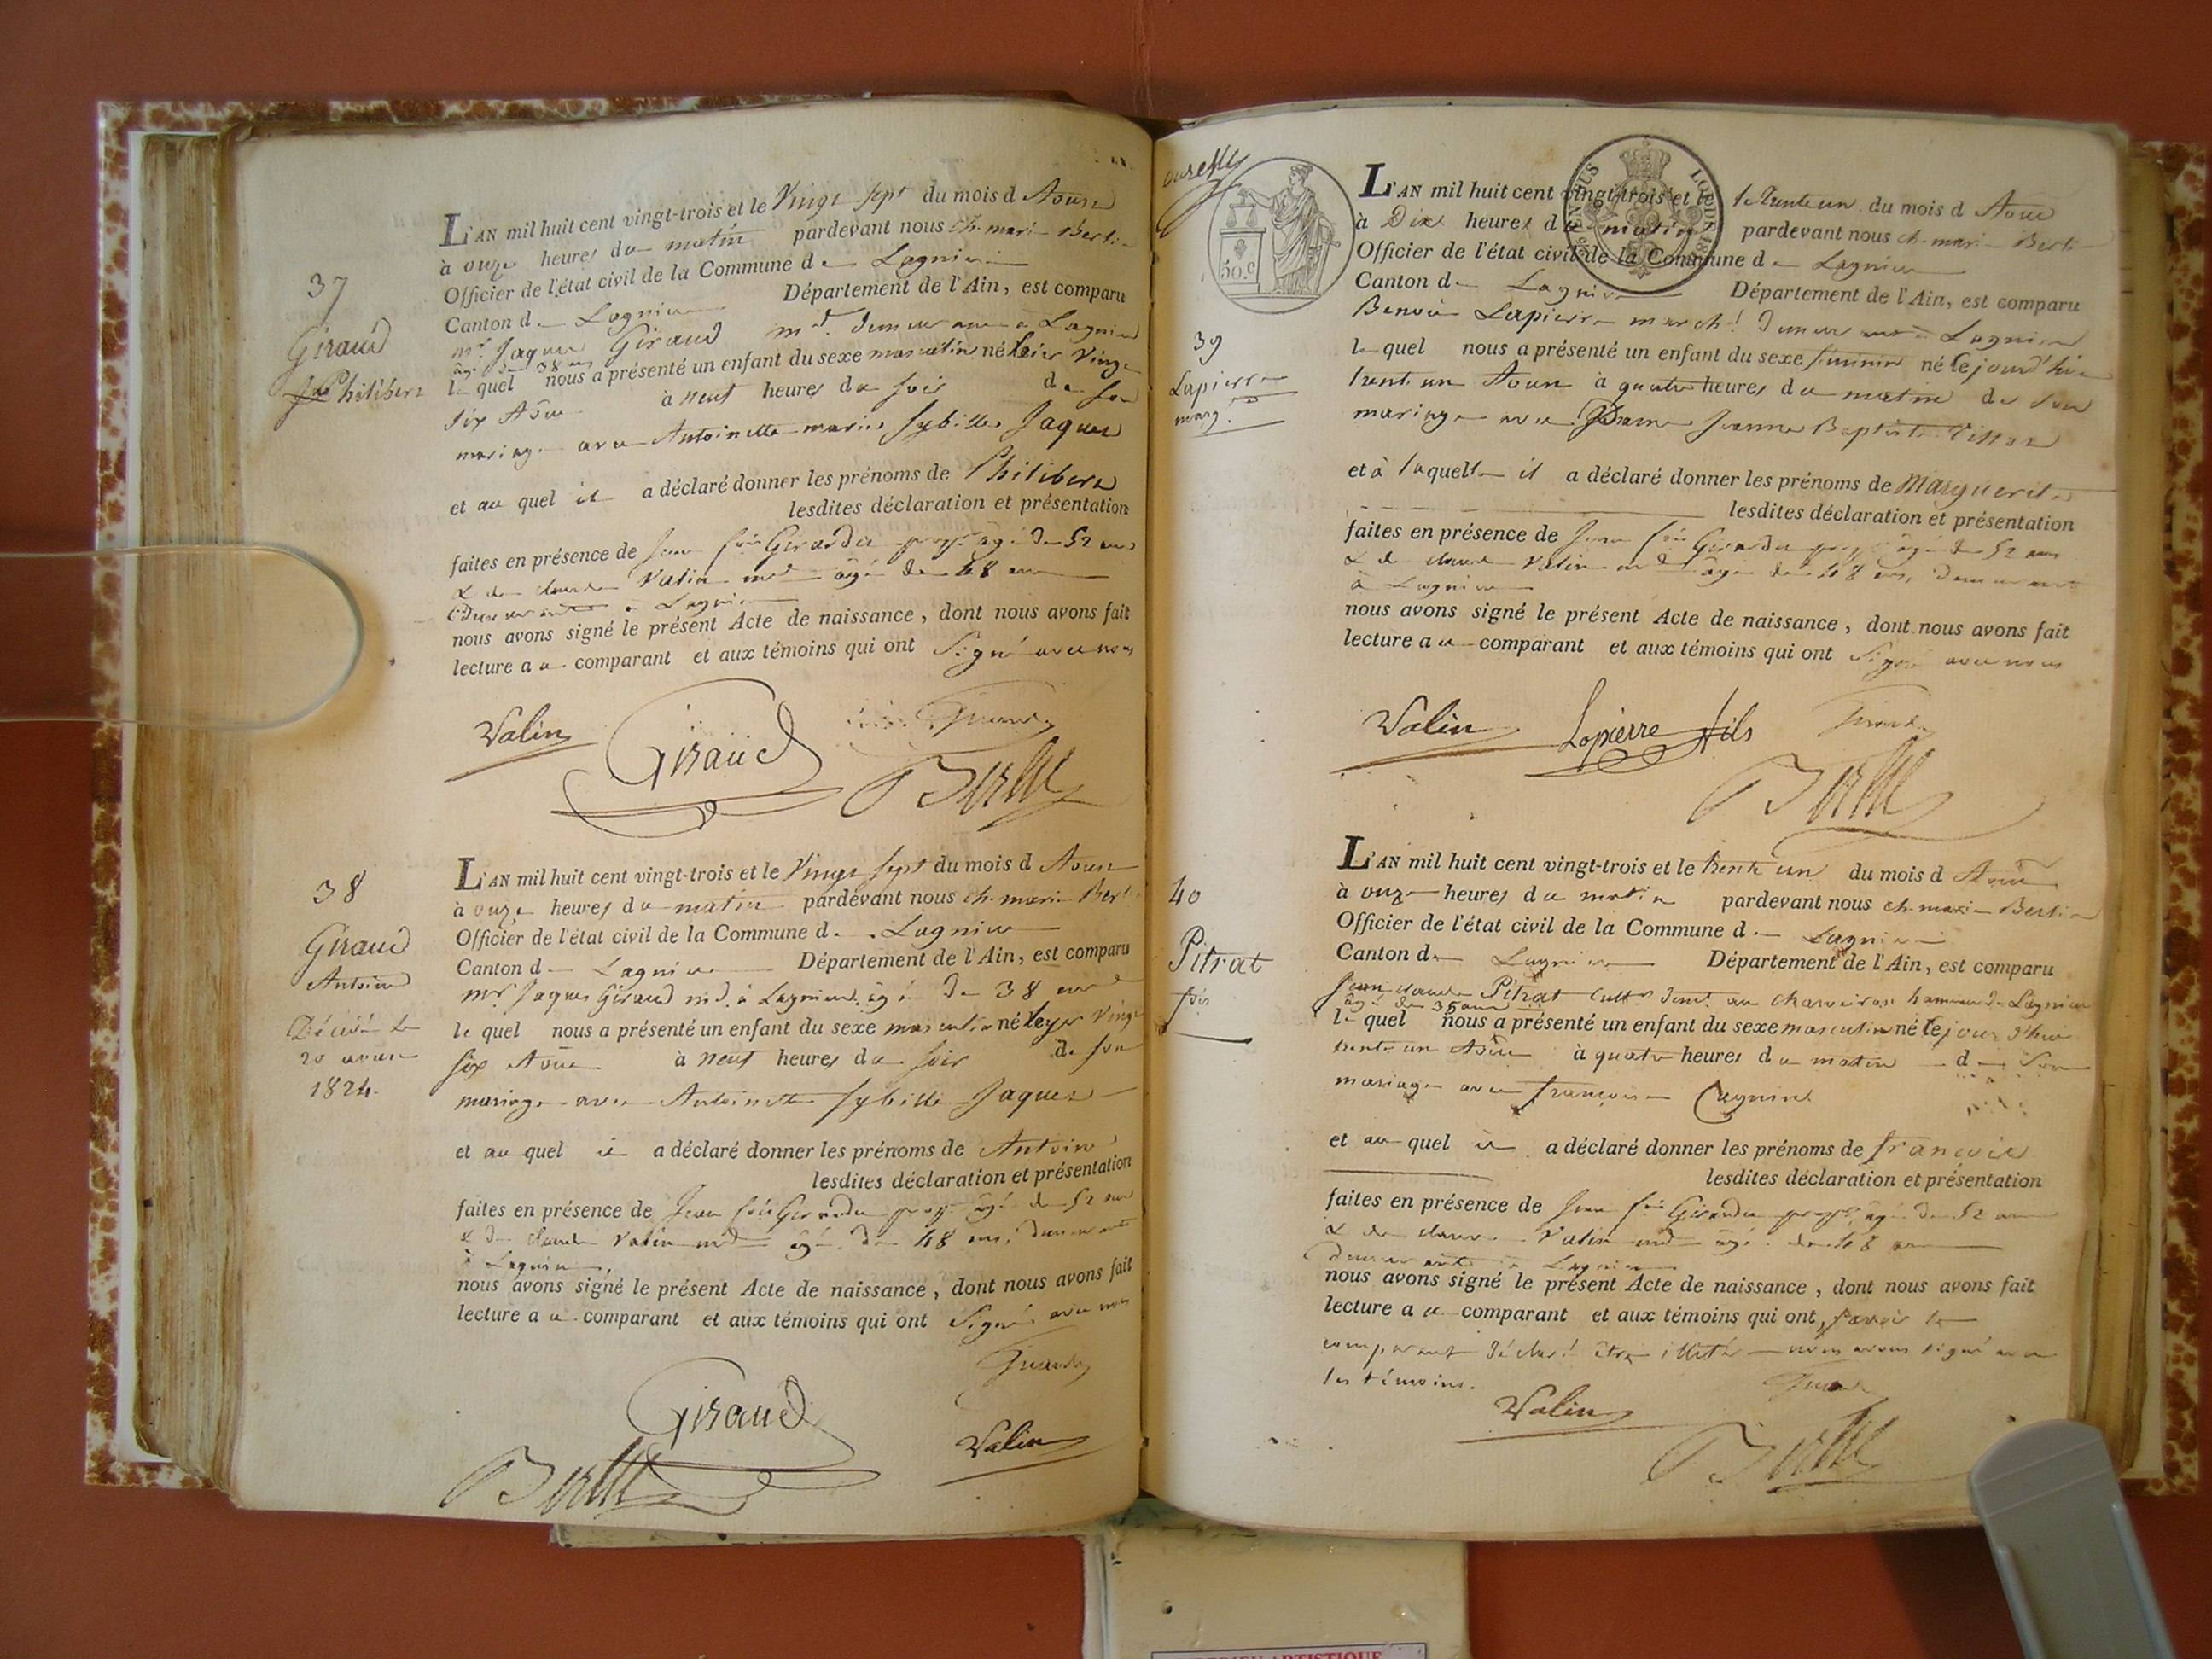 37
Giraud
Philibert
L'AN mil huit cent vingt-trois et le Vingt sept du mois d Aoust
à onze heures du matin pardevant nous ch. marie Berlie
Officier de l'état civil de la Commune de Lagnieu
Canton de Lagnieu Département de l'Ain, est comparu
mr. Jaques Giraud md. demeurant à Lagnieu
âgé de 38 ans
le quel nous a présenté un enfant du sexe masculin né hier Vingt
six Août à neuf heures du soir de son
mariage avec Antoinette marie Sybille Jaquet
et au quel il a déclaré donner les prénoms de Philibert
lesdites déclaration et présentation
faites en présence de Jean fois Girardet propre âgé de 52 ans
& de claude Valin md âgé de 48 ans
demeurants à Lagnieu
nous avons signé le présent Acte de naissance, dont nous avons fait
lecture au comparant et aux témoins qui ont Signé avec nous
Valin Giraud
38
Giraud
Antoine
Décédé le
20
1824.
L'AN mil huit cent vingt-trois et le Vingt sept du mois d Aoust
à onze heures du matin pardevant nous ch. marie Berlie
Officier de l'état civil de la Commune de Lagnieu
Canton de Lagnieu Département de l'Ain, est comparu
mr. Jaques Giraud md. à Lagnieu âgé de 38 ans
le quel nous a présenté un enfant du sexe masculin né le yer Vingt
six Août à neuf heures du soir de son
mariage avec Antoinette Sybille Jaquet
et au quel il a déclaré donner les prénoms de Antoine
lesdites déclaration et présentation
faites en présence de Jean fois Girardet propre âgé de 52 ans
& de claude Valin md âgé de 48 ans, demeurant
à Lagnieu,
nous avons signé le présent Acte de naissance, dont nous avons fait
lecture au comparant et aux témoins qui ont Signé avec nous
Giraud
Valin
50.c
39
Lapierre
marg.te
L'AN mil huit cent vingt-trois et le le trente un du mois d Août
à Dix heures du matin pardevant nous ch. marie Berlie
Officier de l'état civil de la Commune de Lagnieu
Canton de Lagnieu Département de l'Ain, est comparu
Benoit Lapierre march.d demeurant à Lagnieu
le quel nous a présenté un enfant du sexe feminin né le jourd'hui
trente un Aoust à quatre heures du matin de son
mariage avec Dame Jeanne Baptiste
et à laquelle il a déclaré donner les prénoms de Marguerite
lesdites déclaration et présentation
faites en présence de Jean fois Girardet propre âgé de 52 ans
& de claude Valin md âgé de 48 ans, demeurants
à Lagnieu
nous avons signé le présent Acte de naissance, dont nous avons fait
lecture au comparant et aux témoins qui ont Signé avec nous
Valin Lapierre fils
40
Pitrat
fois
L'AN mil huit cent vingt-trois et le trente un du mois d Août
à onze heures du matin pardevant nous ch. marie Berlie
Officier de l'état civil de la Commune de Lagnieu
Canton de Lagnieu Département de l'Ain, est comparu
Jean claude Pitrat cultr demt. au charveiron hameau de Lagnieu
âgé de 36 ans
le quel nous a présenté un enfant du sexe masculin né le jour d'hui
trente un Août à quatre heures du matin de son
mariage avec françoise
et au quel il a déclaré donner les prénoms de françois
lesdites déclaration et présentation
faites en présence de Jean fois Girardet propre, âgé de 52 ans
& de claude Valin md âgé de 48 ans
demeurants à Lagnieu
nous avons signé le présent Acte de naissance, dont nous avons fait
lecture au comparant et aux témoins qui ont, savoir le
comparant déclaré être illitéré nous avons signé avec
les témoins.
Valin